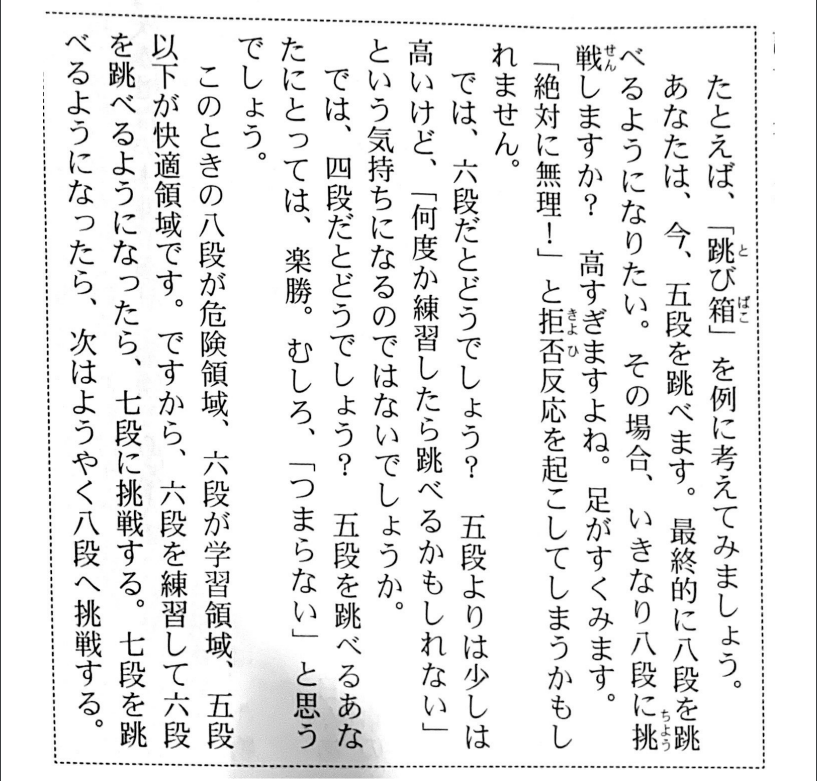 たとえば、「跳び箱」を例に考えてみましょう。
あなたは、今、五段を跳べます。最終的に八段を跳
べるようになりたい。その場合、いきなり八段に挑
戦しますか？　高すぎますよね。足がすくみます。
「絶対に無理！」と拒否反応を起こしてしまうかもし
れません。
では、六段だとどうでしょう？　五段よりは少しは
高いけど、「何度か練習したら跳べるかもしれない」
という気持ちになるのではないでしょうか。
では、四段だとどうでしょう？　五段を跳べるあな
たにとっては、楽勝。むしろ、「つまらない」と思う
でしょう。
このときの八段が危険領域、六段が学習領域、五段
以下が快適領域です。ですから、六段を練習して六段
を跳べるようになったら、七段に挑戦する。七段を跳
べるようになったら、次はようやく八段へ挑戦する。